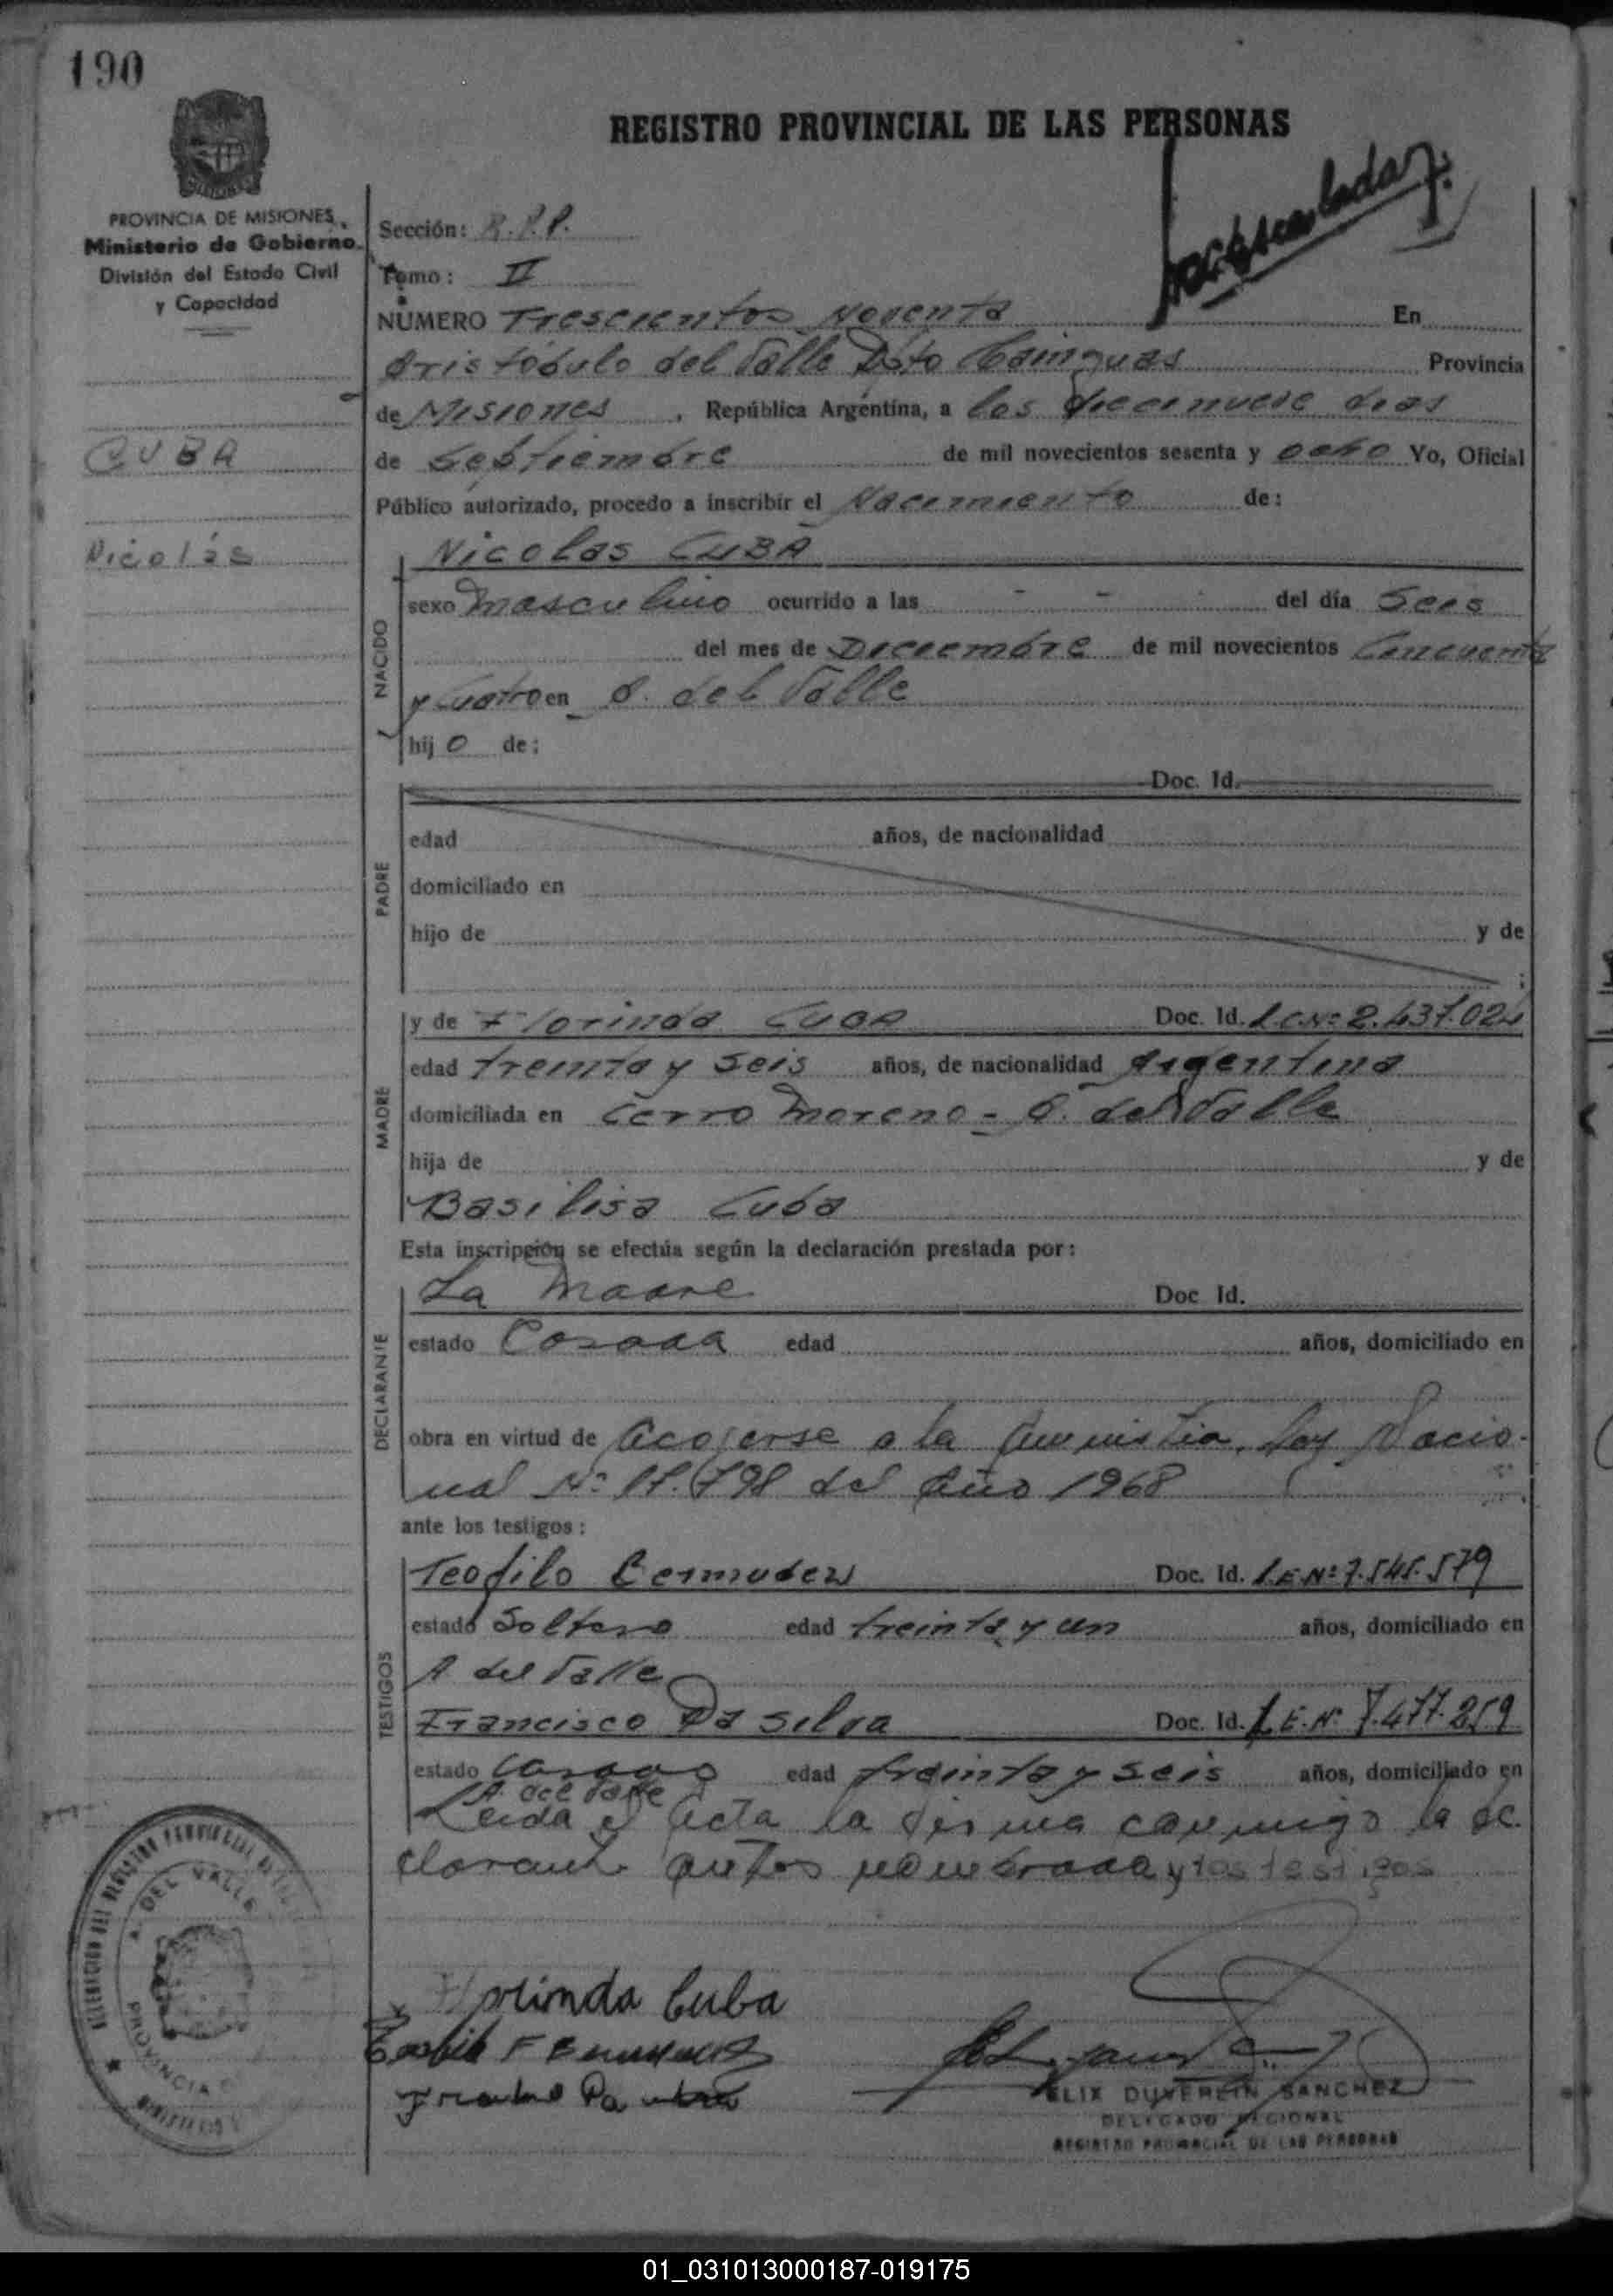 190
REGISTRO PROVINCIAL DE LAS PERSONAS
PROVINCIA DE MISIONES
Ministerio de Gobierno
División del Estado Civil
y Capacidad
Sección: R.P.P.
Tomo: II
NÚMERO Trescientos Noventa En
Aristóbulo del Valle Dpto Cainguas Provincia
de Misiones, República Argentina, a los diecinueve dias
CUBA
de Septiembre de mil novecientos sesenta y ocho Yo, Oficial
Público autorizado, procedo a inscribir el Nacimiento de:
Nicolás
Nicolas CUBA
NACIDO
sexo Masculino ocurrido a las - - del día Seis
del mes de Diciembre de mil novecientos Cincuenta
y Cuatro en A. del Valle
hij o de:
PADRE
Doc. Id.
edad años, de nacionalidad
domiciliado en
hijo de y de
;
MADRE
y de Florinda Cuba Doc. Id. L.C.Nº 2.437.024
edad treinta y seis años, de nacionalidad Argentina
domiciliada en Cerro Moreno - A. del Valle
hija de y de
Basilisa Cuba
Esta inscripción se efectúa según la declaración prestada por:
DECLARANTE
La Madre Doc Id.
estado Casada edad años, domiciliado en
obra en virtud de acojerse a la Amnistia, Ley Nacio-
nal Nº 17.798 del Año 1968
ante los testigos:
TESTIGOS
Teofilo Bermudez Doc. Id. L.E.Nº 7.545.579
estado Soltero edad treinta y un años, domiciliado en
A del Valle
Francisco Da Silva Doc. Id. L.E.Nº 7.477.259
estado Casado edad treinta y seis años, domiciliado en
A. del Valle
Leida el Acta la firma conmigo la de
clarante antes nombrada y los testigos
Florinda Cuba
A. DEL VALLE
PROVINCIA
MISIONES
FELIX DUVERLIN SANCHEZ
DELEGADO REGIONAL
REGISTRO PROVINCIAL DE LAS PERSONAS
01_031013000187-019175